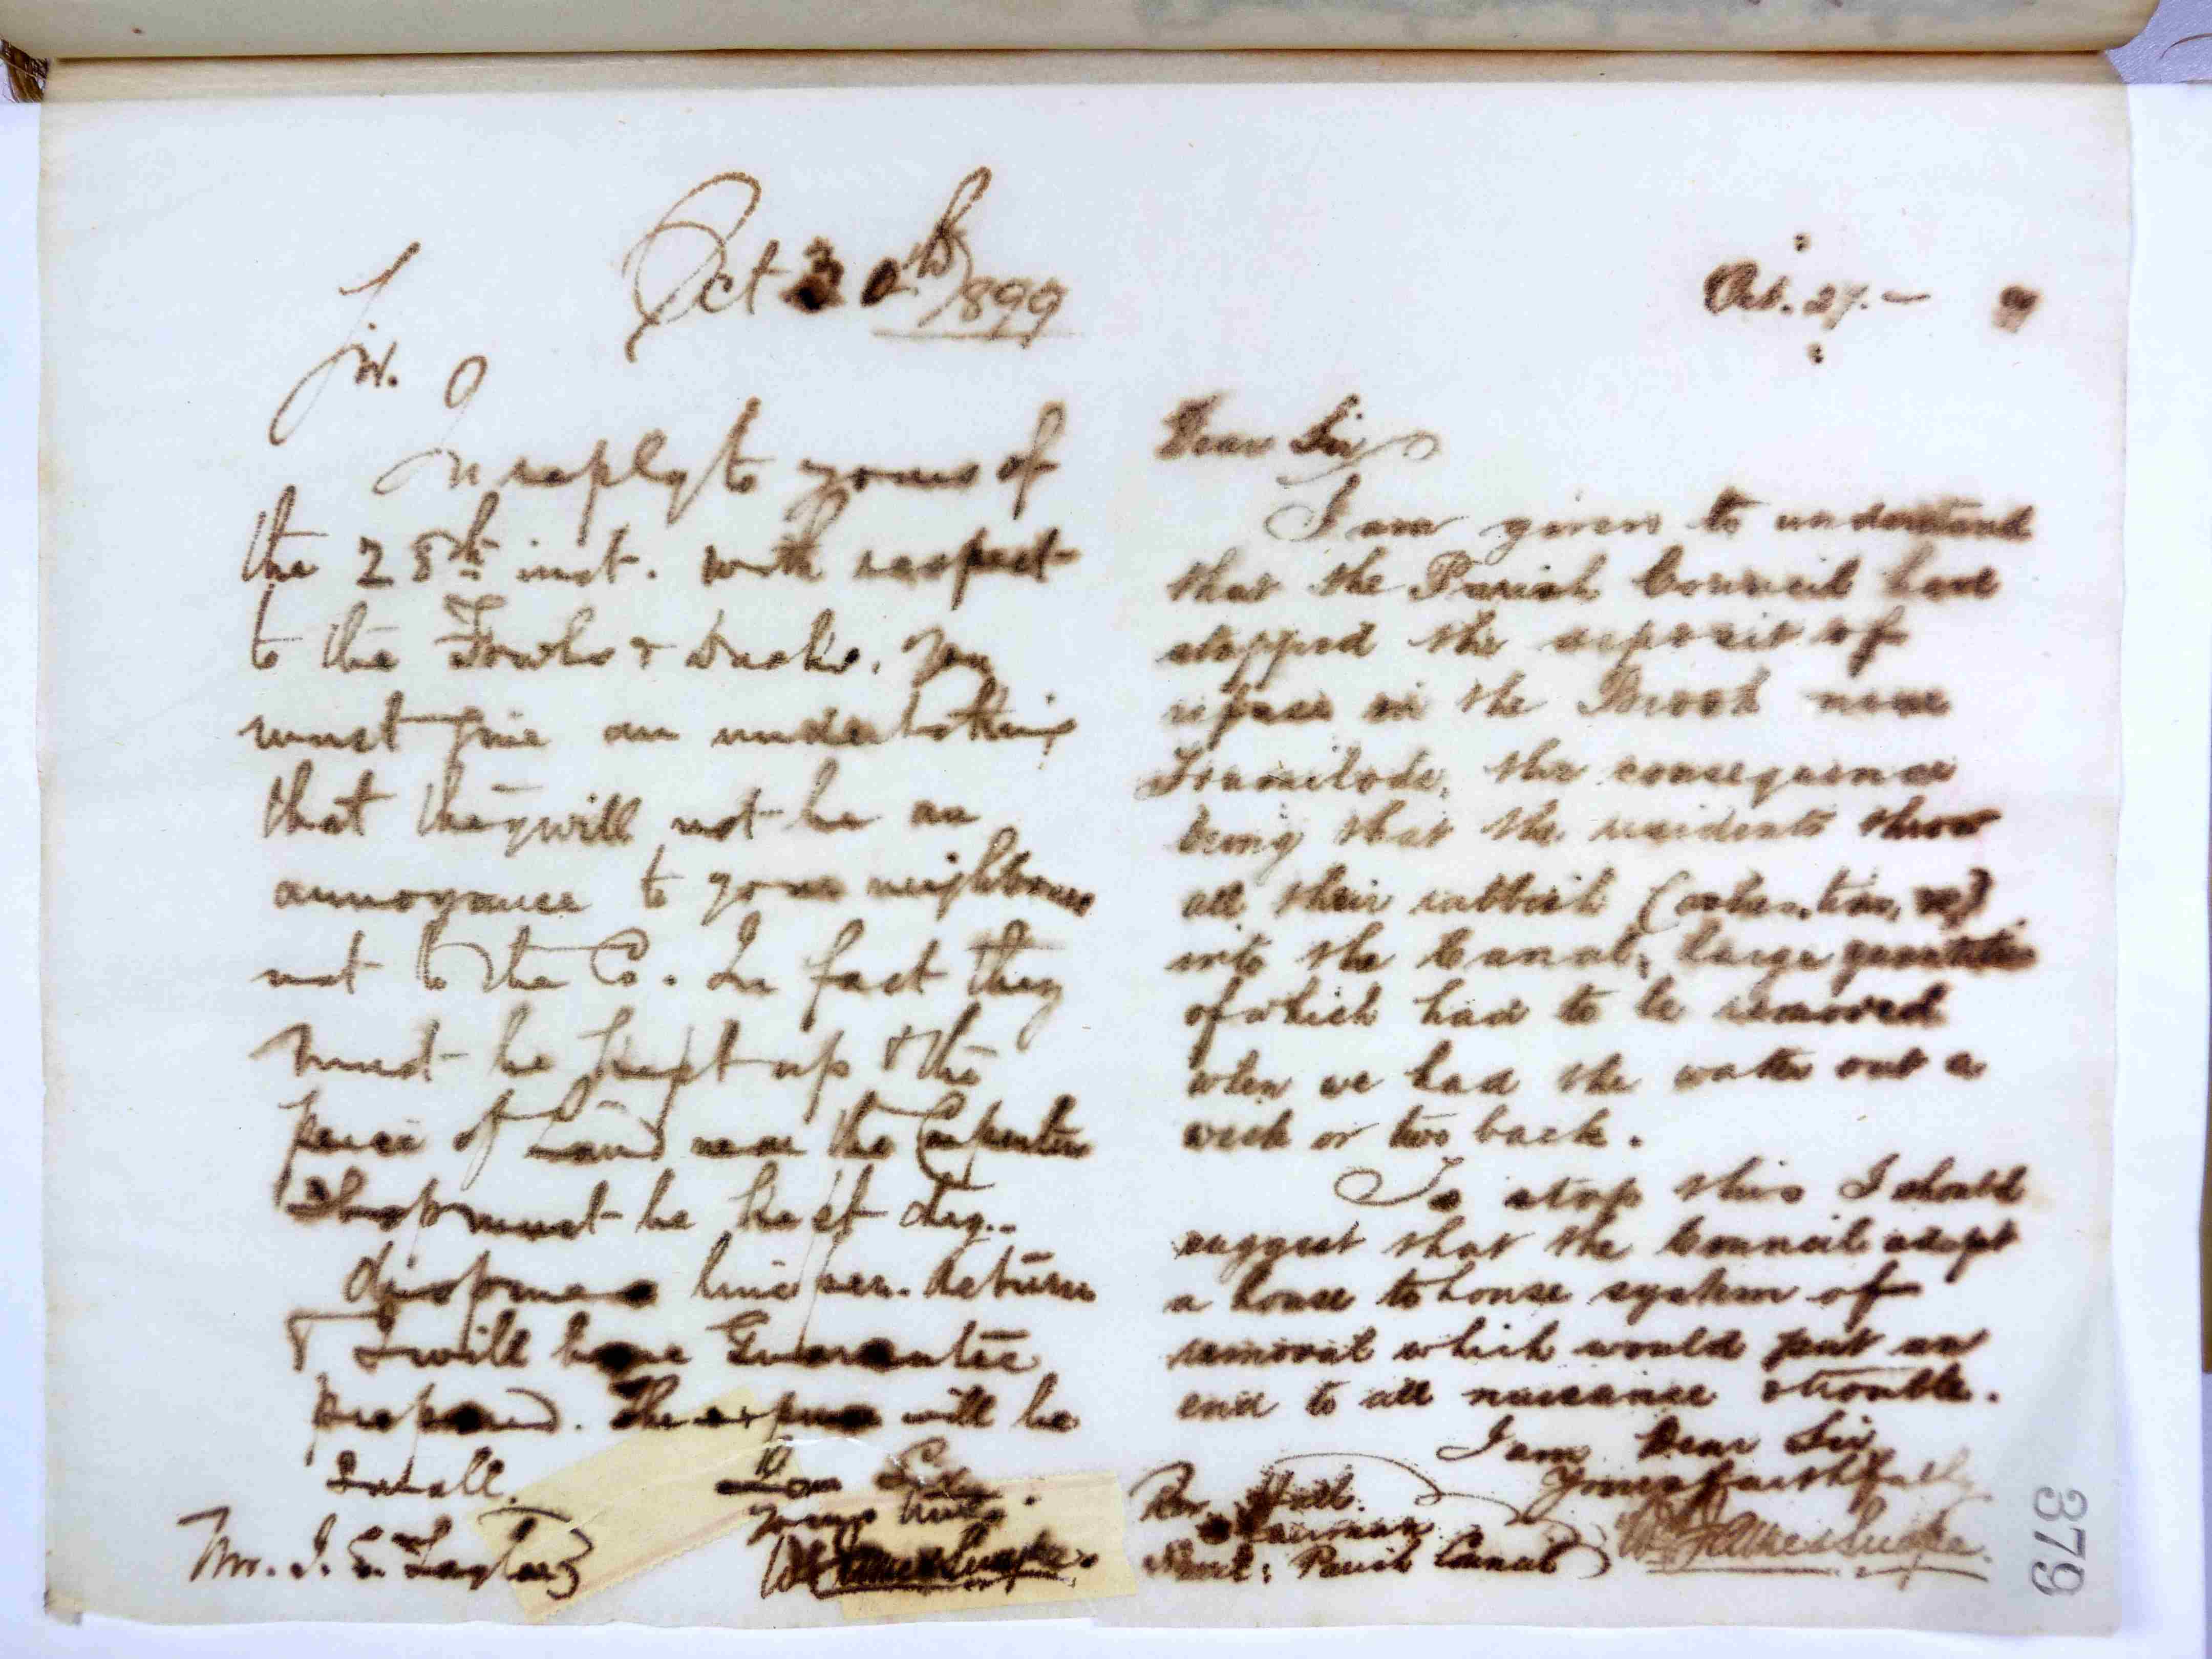 Oct 30th 1899
Sir.
In reply to yours of
the 28th inst. with respect
to the Fowls & Ducks. you
must give an undertaking
that they will not be an
annoyance to your neighbours
not to the Co. In fact they
must be kept up & the
peice of Land near the Carpenters
Shop must be kept dug..
drop me a line per. return
& I will have Guarantee
prepared. The expense will be
Small.
Yours truly.
Mr. J. E. Taylor
Oct. 27. — 99
Dear Sir
I am given to understand
that the Parish Council have
stopped the deposit of
refuse in the Brook near
Framilode, the consequence
being that the residents throw
all their rubbish (ashes, tins, &c)
into the Canal, large quantities
of which had to be removed
when we had the water out a
week or two back.
To stop this I should
suggest that the Council adopt
a house to house system of
removal which would put an
end to all nuisance & trouble.
I am Dear Sir
Yours faithfully
Rev. Hall.
Chairman
Parish Council
379